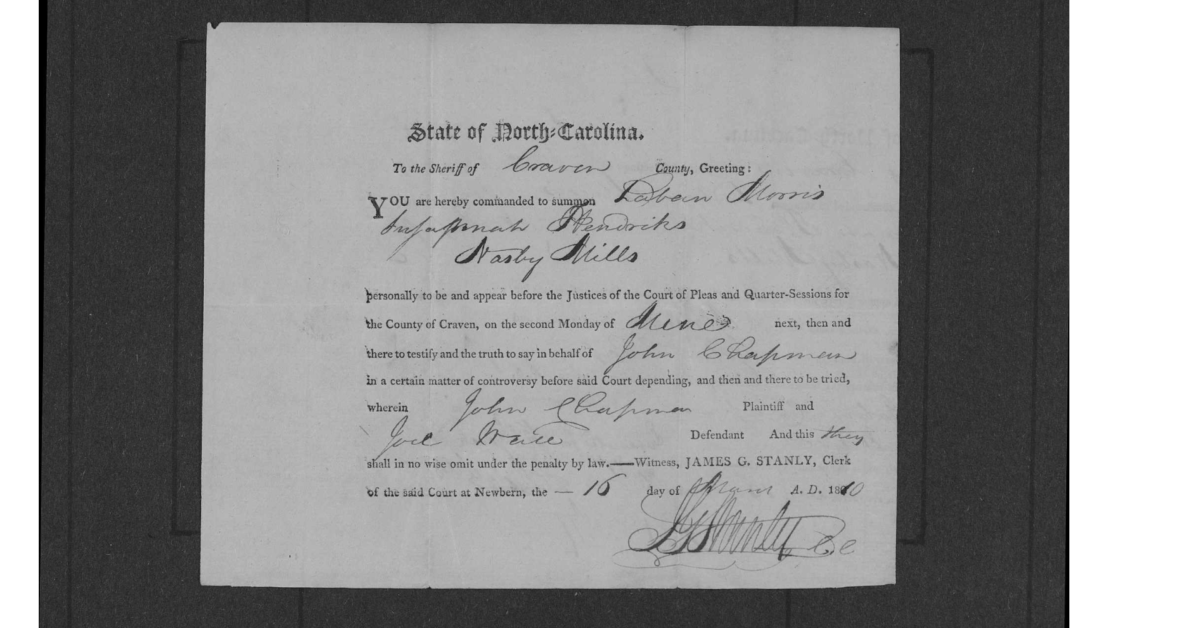 State of North-Carolina.
To the Sheriff of Craven County, Greeting:
YOU are hereby commanded to summon Laban Morris
Susannah Hendriks
Nasby Mills
personally to be and appear before the Justices of the Court of Pleas and Quarter-Sessions for
the County of Craven, on the second Monday of June next, then and
there to testify and the truth to say in behalf of John Chapman
in a certain matter of controversy before said Court depending, and then and there to be tried,
wherein John Chapman Plaintiff and
Joel Defendant And this they
shall in no wise omit under the penalty by law.—Witness, JAMES G. STANLY, Clerk
of the said Court at Newbern, the — 16 day of A. D. 18
J G Stanly